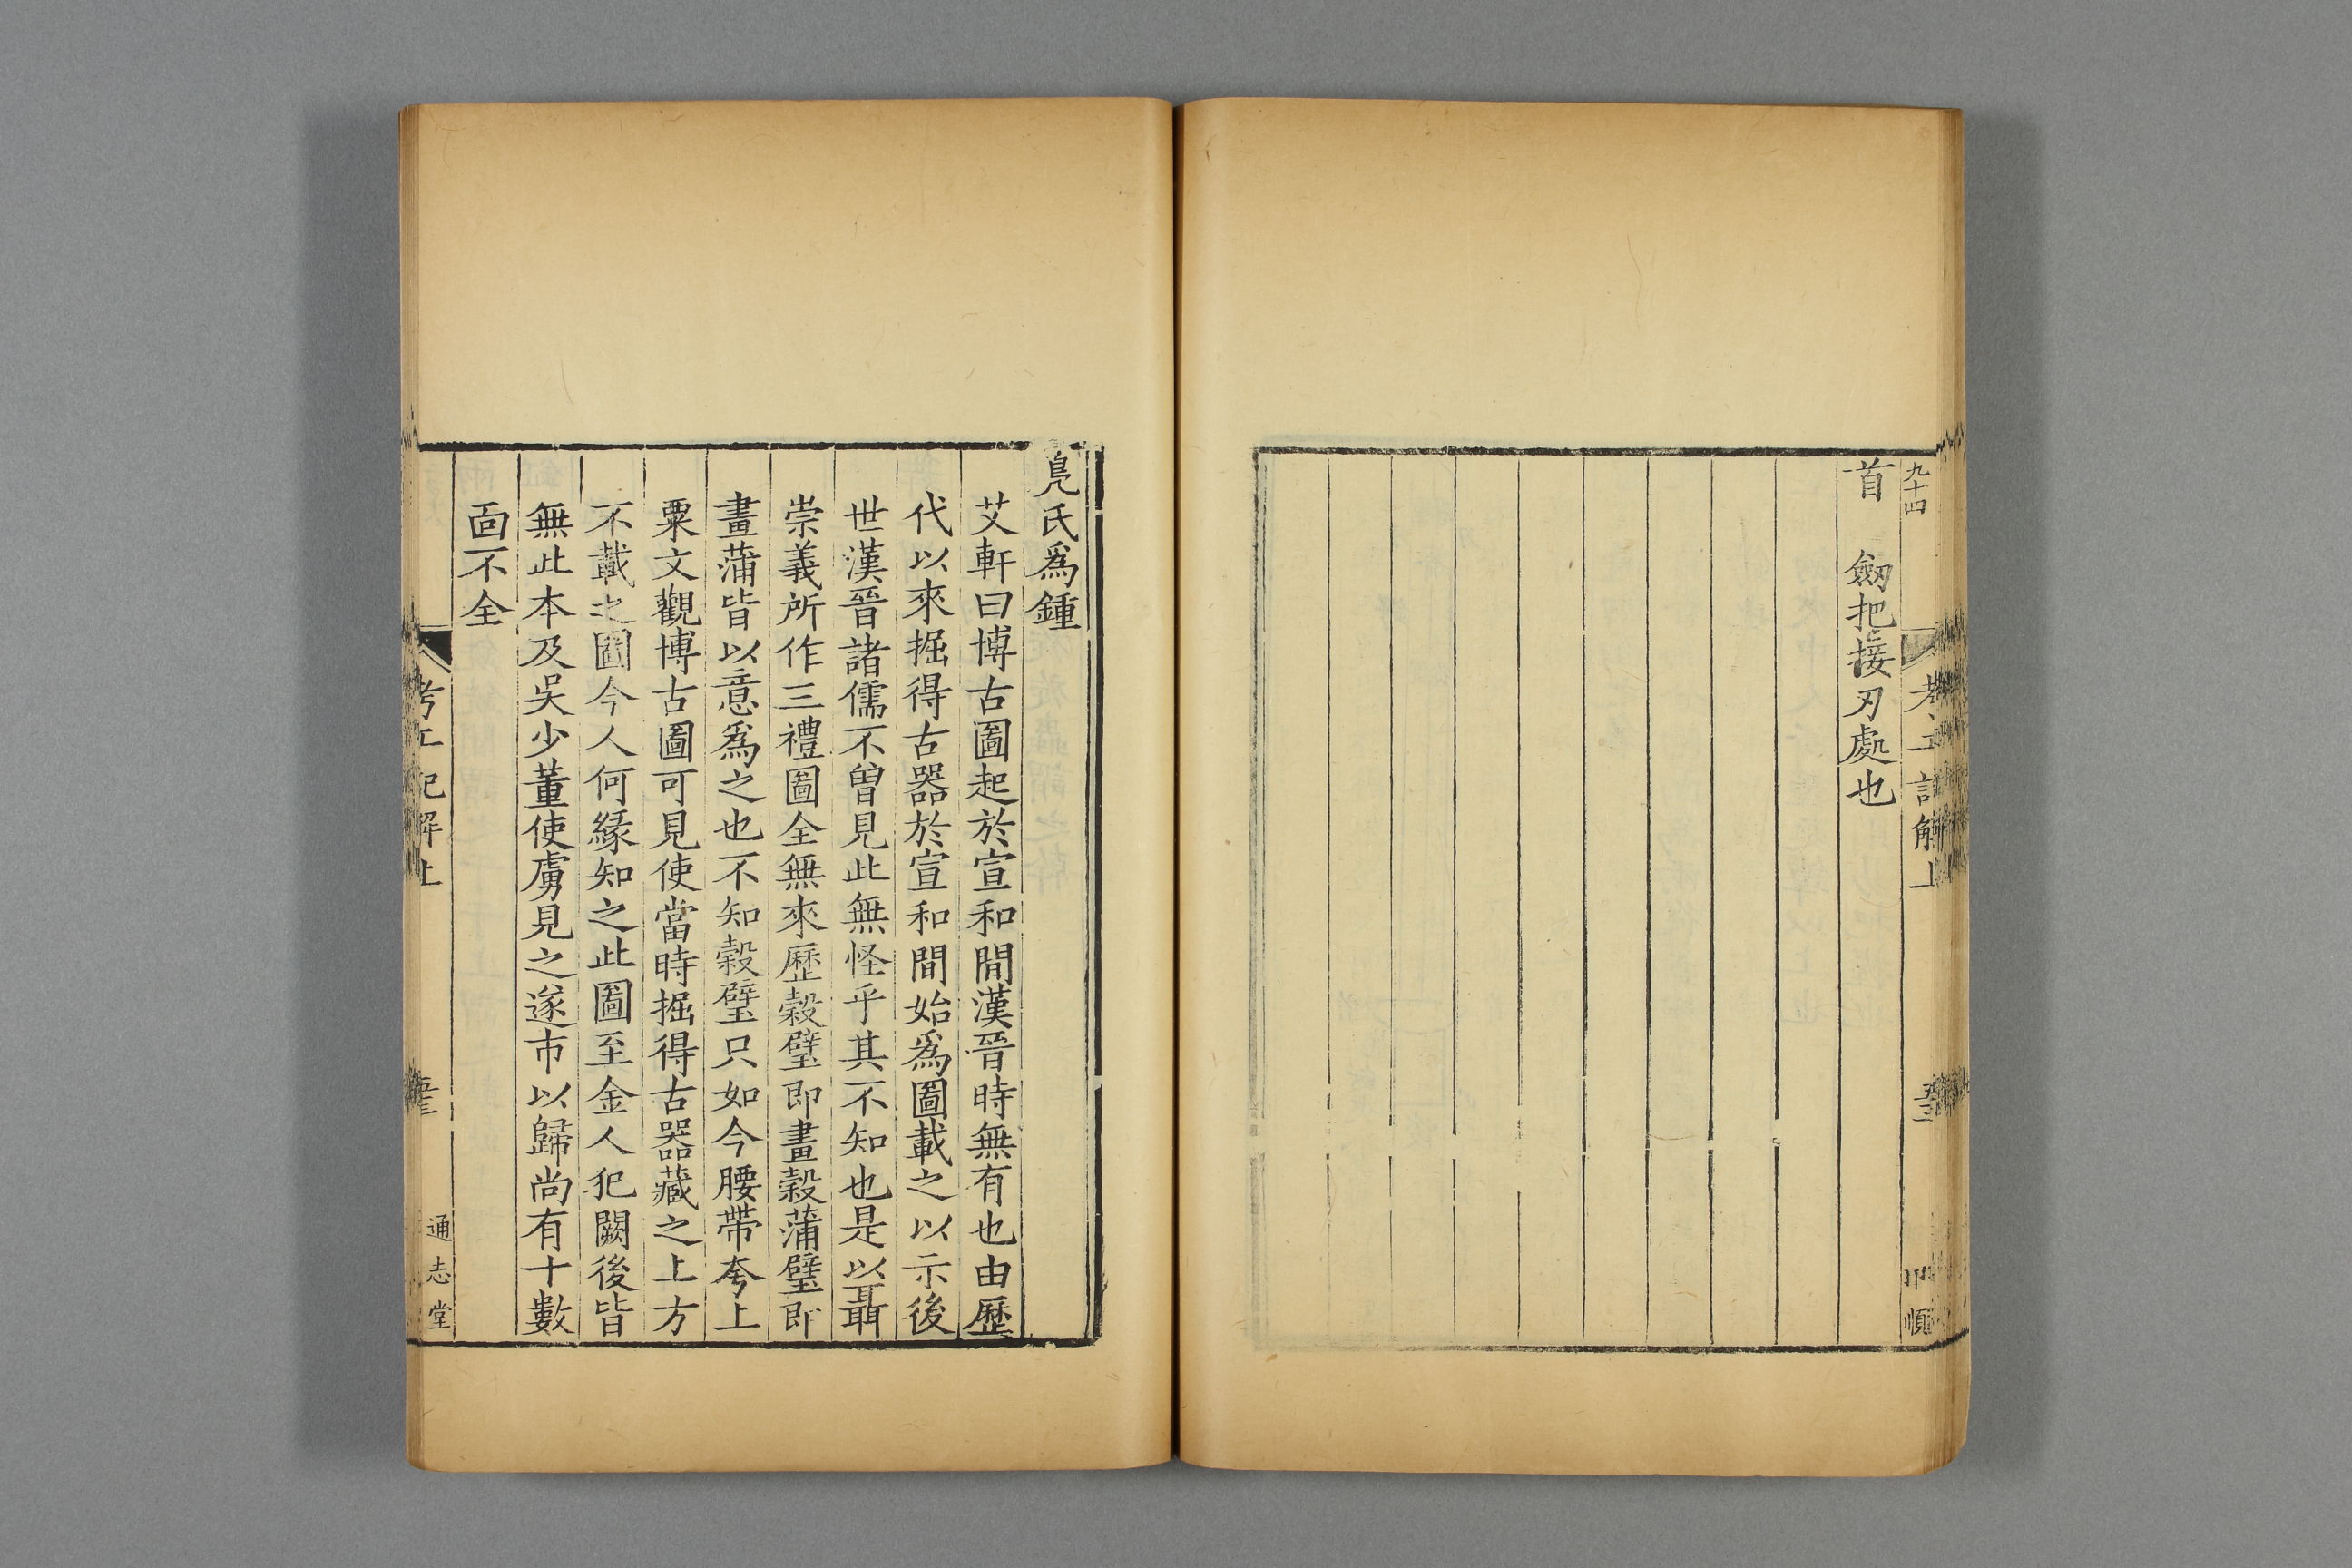 九十四
首　劒把接刃處也
鳧氏爲鍾
艾軒曰博古圖起於宣和間漢晉時無有也由歷
代以來掘得古器於宣和間始爲圖載之以示後
世漢晉諸儒不曽見此無怪乎其不知也是以聶
崇義所作三禮圖全無來歷穀璧即畫穀蒲璧即
畫蒲皆以意爲之也不知穀璧只如今腰帶夸上
粟文觀博古圖可見使當時掘得古器藏之上方
不載之圖今人何緣知之此圖至金人犯闕後皆
無此本及吳少董使虜見之遂市以歸尚有十數
面不全
考工記解上
通志堂